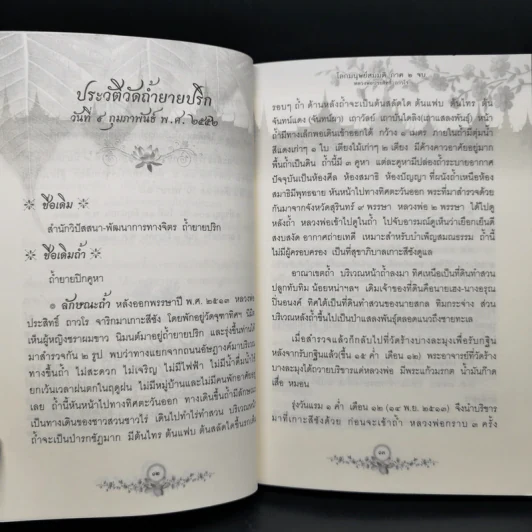 ประวัติวัดถ้ำยายปริก
วันที่ ๙ กุมภาพันธ์ พ.ศ. ๒๕๕๒
ชื่อเดิม
สำนักวิปัสสนา-พัฒนาการทางจิตร ถ้ำยายปริก
ชื่อเดิมถ้ำ
ถ้ำยายปึกคูหา
๑ ลักษณะถ้ำ หลังออกพรรษาปี พ.ศ. ๒๕๑๓ หลวงพ่อ
ประสิทธิ์ ถาวโร จาริกมาเกาะสีชัง โดยพักอยู่วัดจุฑาทิศฯ นิมิต
เห็นผู้หญิงชราผมขาว นิมนต์มาอยู่ถ้ำยายปริก และรุ่งขึ้นท่านได้
มาสำรวจกัน ๒ รูป พบว่าทางแยกจากถนนอัษฎางค์มาบริเวณ
ทางขึ้นถ้ำ ไม่สะดวก ไม่เจริญ ไม่มีไฟฟ้า ไม่มีน้ำดื่มน้ำใช้
ยกเว้นเวลาฝนตกในฤดูฝน ไม่มีหมู่บ้านและไม่มีคนพักอาศัย
เลย ถ้ำนี้หันหน้าไปทางทิศตะวันออก ทางเดินขึ้นถ้ำมีลักษณะ
เป็นทางเดินของชาวสวนชาวไร่ เดินไปทำไร่ทำสวน บริเวณหน้า
ถ้ำจะเป็นป่ารกชัฏมาก มีต้นไทร ต้นแฟบ ต้นสลัดไดขึ้น
โลกมนุษย์สมบัติ ภาค ๒ จบ
รอบๆ ถ้ำ ด้านหลังถ้ำจะเป็นต้นสลัดได ต้นแฟบ ต้นไทร ต้น
จันทน์แดง (จันทน์ผา) เถาวัลย์ เถาบันไดลิง(เถาแสลงพันธุ์) หน้า
ถ้ำมีทางเล็กพอเดินเข้าออกได้ กว้าง ๑ เมตร ภายในถ้ำมีตุ่มน้ำ
สีแดงเก่าๆ ๑ ใบ เตียงไม้เก่าๆ ๒ เตียง มีค้างคาวอาศัยอยู่มาก
พื้นถ้ำเป็นดิน ถ้ำนี้มี ๓ คูหา แต่ละคูหามีปล่องถ้ำระบายอากาศ
ปัจจุบันเป็นห้องศีล ห้องสมาธิ ห้องปัญญา ที่ผนังถ้ำเหนือห้อง
สมาธิมีพุทธฉาย หันหน้าไปทางทิศตะวันออก พระที่มาสำรวจด้วย
กันมาจากจังหวัดสุรินทร์ ๙ พรรษา หลวงพ่อ ๒ พรรษา ได้ไปดู
หลังถ้ำ หลวงพ่อเข้าไปดูในถ้ำ ไปจับอารมณ์ดูเห็นว่าเยือกเย็นดี
สงบสงัด อากาศถ่ายเทดี เหมาะสำหรับบำเพ็ญสมณธรรม ถ้ำนี้
ไม่มีผู้ครอบครอง เป็นที่สุขาภิบาลเกาะสีชังดูแล
อาณาเขตถ้ำ บริเวณหน้าถ้ำลงมา ทิศเหนือเป็นที่ดินทำสวน
ปลูกทับทิม น้อยหน่าฯลฯ เดิมเจ้าของที่ดินคือนายเฮง-นางอรุณ
ปิ่นอนงค์ ทิศใต้เป็นที่ดินทำสวนของนายสกล ทิมกระจ่าง ส่วน
บริเวณหลังถ้ำขึ้นไปเป็นป่าแสลงพันธุ์ตลอดแนวถึงชายทะเล
เมื่อสำรวจแล้วก็กลับไปที่วัดร้างบางละมุงเพื่อรับกฐิน
หลังจากรับกฐินแล้ว(ขึ้น ๑๑ ค่ำ เดือน ๑๒) พระอาจารย์ที่วัดร้าง
บางละมุงได้ถวายบริขารแด่หลวงพ่อ มีพระแก้วมรกต น้ำมันก๊าด
เสื่อ หมอน
รุ่งวันแรม ๑ ค่ำ เดือน ๑๒ (๑๔ พ.ย. ๒๕๑๓) จึงนำบริขาร
มาที่เกาะสีชังด้วย ก่อนจะเข้าถ้ำ หลวงพ่อกราบ ๓ ครั้ง